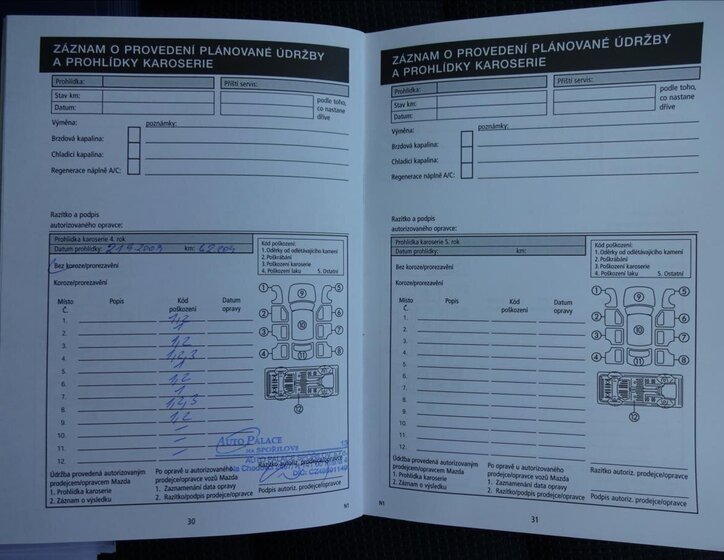 ZÁZNAM O PROVEDENÍ PLÁNOVANÉ ÚDRŽBY
A PROHLÍDKY KAROSERIE
Prohlídka:
Příští servis:
Stav km:
Datum:
podle toho,
co nastane
dříve
Výměna:
poznámky:
Brzdová kapalina:
Chladicí kapalina:
Regenerace náplně A/C:
Razítko a podpis
autorizovaného opravce:
Prohlídka karoserie 4. rok
Datum prohlídky: 21 9 2009 km: 62 004
Bez koroze/prorezavění
Koroze/prorezavění
Kód poškození:
1. Oděrky od odlétávajícího kamení
2. Poškrábání
3. Poškození karoserie
4. Poškození laku 5. Ostatní
Místo Popis Kód Datum
Č. poškození opravy
1. 1,2
2. 1
3. 1,2
4. 1,2,3
5.
6. 1,2
7. 1
8. 1,2,3
9. 1,2
10. –
11. –
12. –
1 9 5
2 6
10
3 7
4 11 8
12
AUTO PALACE
NA SPOŘILOVĚ
Údržba provedená autorizovaným
prodejcem/opravcem Mazda
1. Prohlídka karoserie
2. Záznam o výsledku
Po opravě u autorizovaného
prodejce/opravce vozů Mazda
1. Zaznamenání data opravy
2. Razítko/podpis prodejce/opravce
Razítko autoriz. prodejce/opravce
Podpis autoriz. prodejce/opravce
30
N1
ZÁZNAM O PROVEDENÍ PLÁNOVANÉ ÚDRŽBY
A PROHLÍDKY KAROSERIE
Prohlídka:
Příští servis:
Stav km:
Datum:
podle toho,
co nastane
dříve
Výměna:
poznámky:
Brzdová kapalina:
Chladicí kapalina:
Regenerace náplně A/C:
Razítko a podpis
autorizovaného opravce:
Prohlídka karoserie 5. rok
Datum prohlídky: km:
Bez koroze/prorezavění
Koroze/prorezavění
Kód poškození:
1. Oděrky od odlétávajícího kamení
2. Poškrábání
3. Poškození karoserie
4. Poškození laku 5. Ostatní
Místo Popis Kód Datum
Č. poškození opravy
1.
2.
3.
4.
5.
6.
7.
8.
9.
10.
11.
12.
1 9 5
2 6
10
3 7
4 11 8
12
Údržba provedená autorizovaným
prodejcem/opravcem Mazda
1. Prohlídka karoserie
2. Záznam o výsledku
Po opravě u autorizovaného
prodejce/opravce vozů Mazda
1. Zaznamenání data opravy
2. Razítko/podpis prodejce/opravce
Razítko autoriz. prodejce/opravce
Podpis autoriz. prodejce/opravce
N1
31